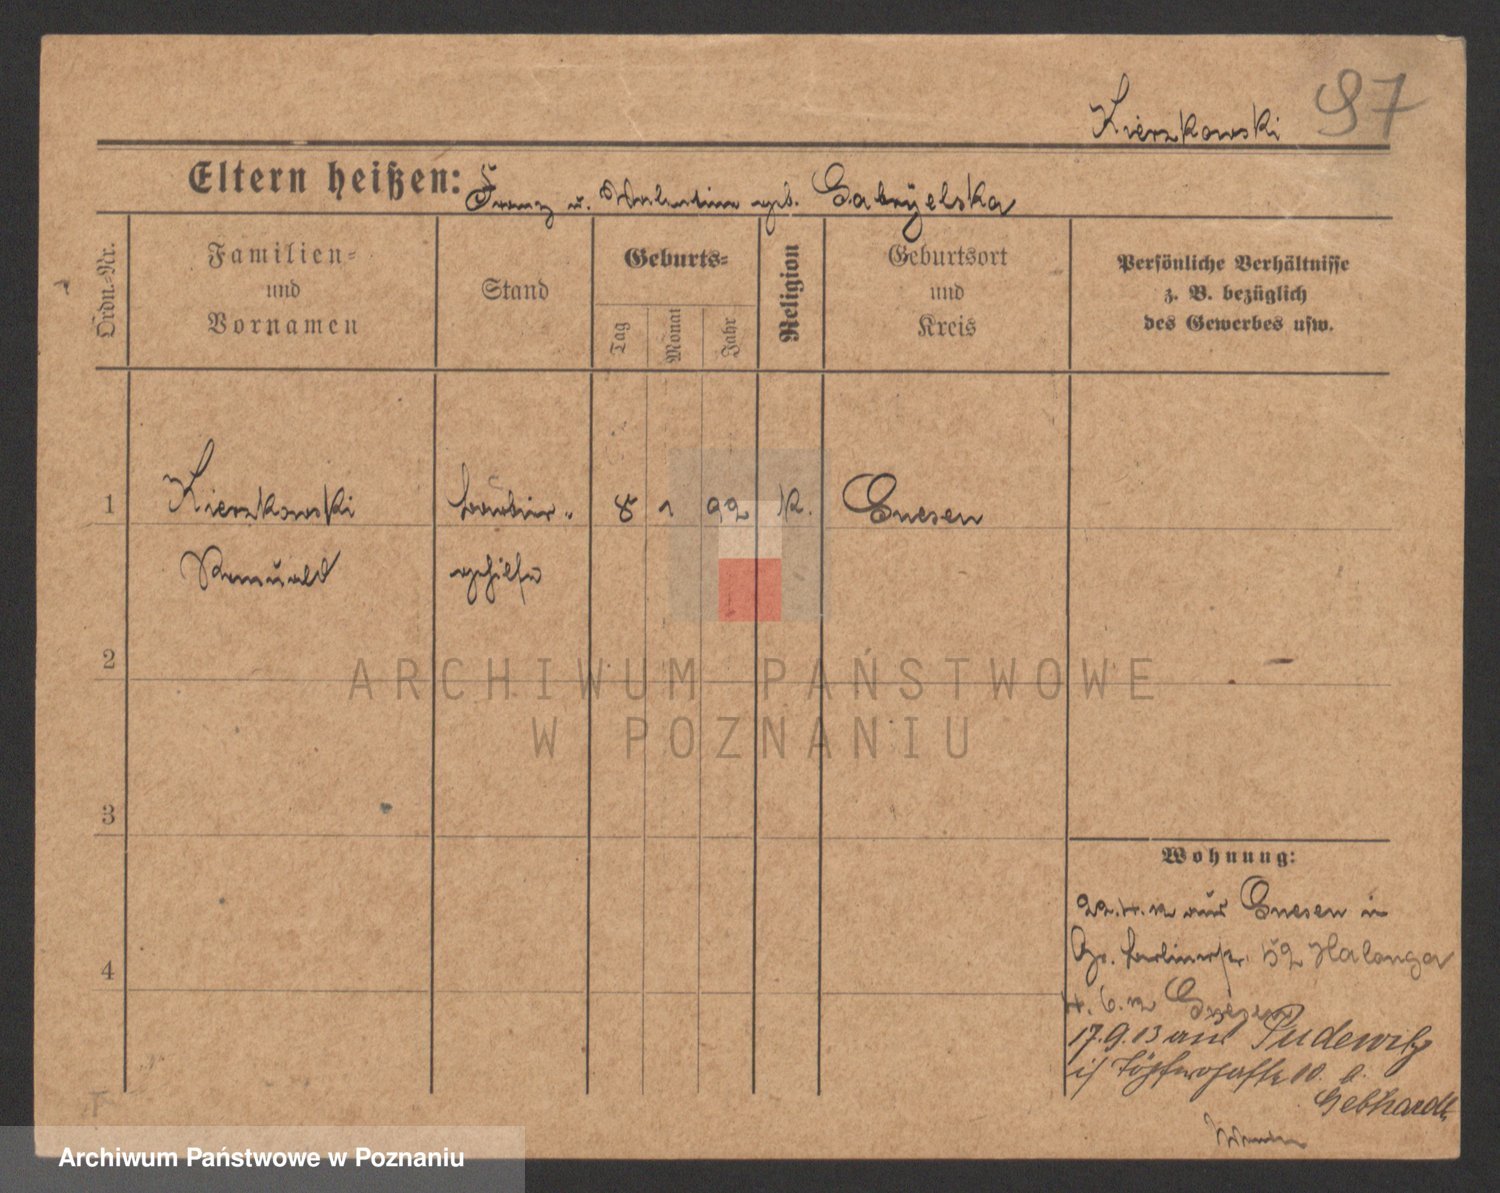 97
Kierzkowski
Eltern heißen: Franz u. Valentine geb. Gabryelska
Ordn.-Nr.
Familien-
und
Vornamen
Stand
Geburts-
Tag
Monat
Jahr
Religion
Geburtsort
und
Kreis
Persönliche Verhältnisse
z. B. bezüglich
des Gewerbes usw.
1
Kierzkowski
Romuald
Barbier-
gehilfe
8 1 92 K. Gnesen
2
ARCHIWUM PAŃSTWOWE
W POZNANIU
3
4
Wohnung:
22.4.12 aus Gnesen in
Berlinerstr. 52 Halanga
4.6.12 Gnesen
17.9.13 aus Pudewitz
Töpfergasse 10. b.
Gebhardt
Archiwum Państwowe w Poznaniu